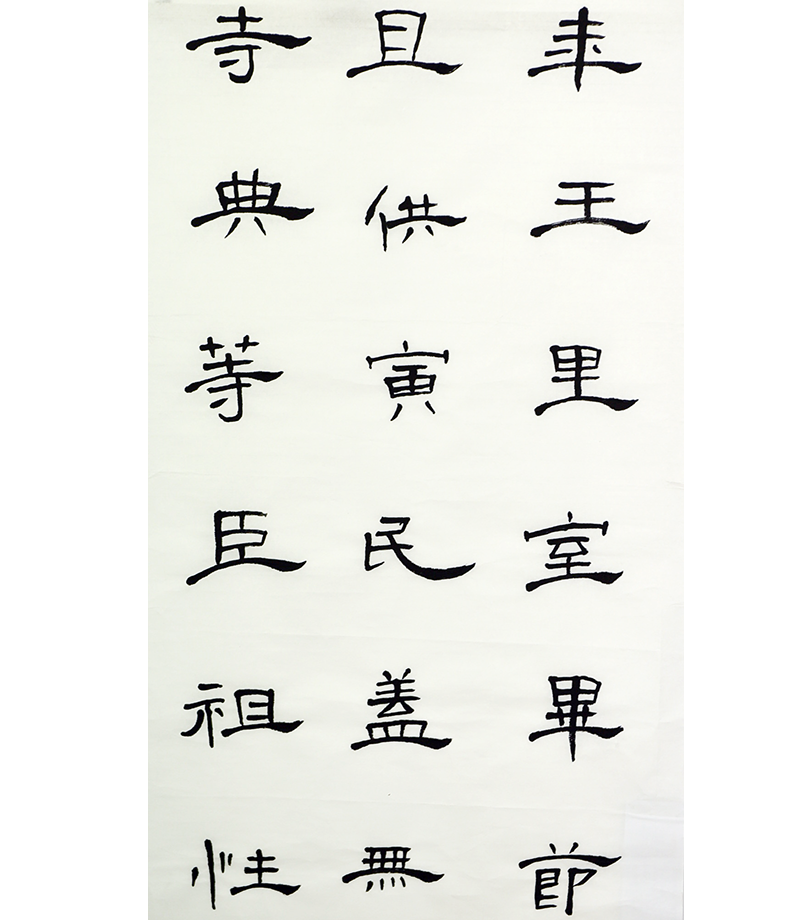 年王里室畢節
且供寅民蓋無
寺典等臣祖性